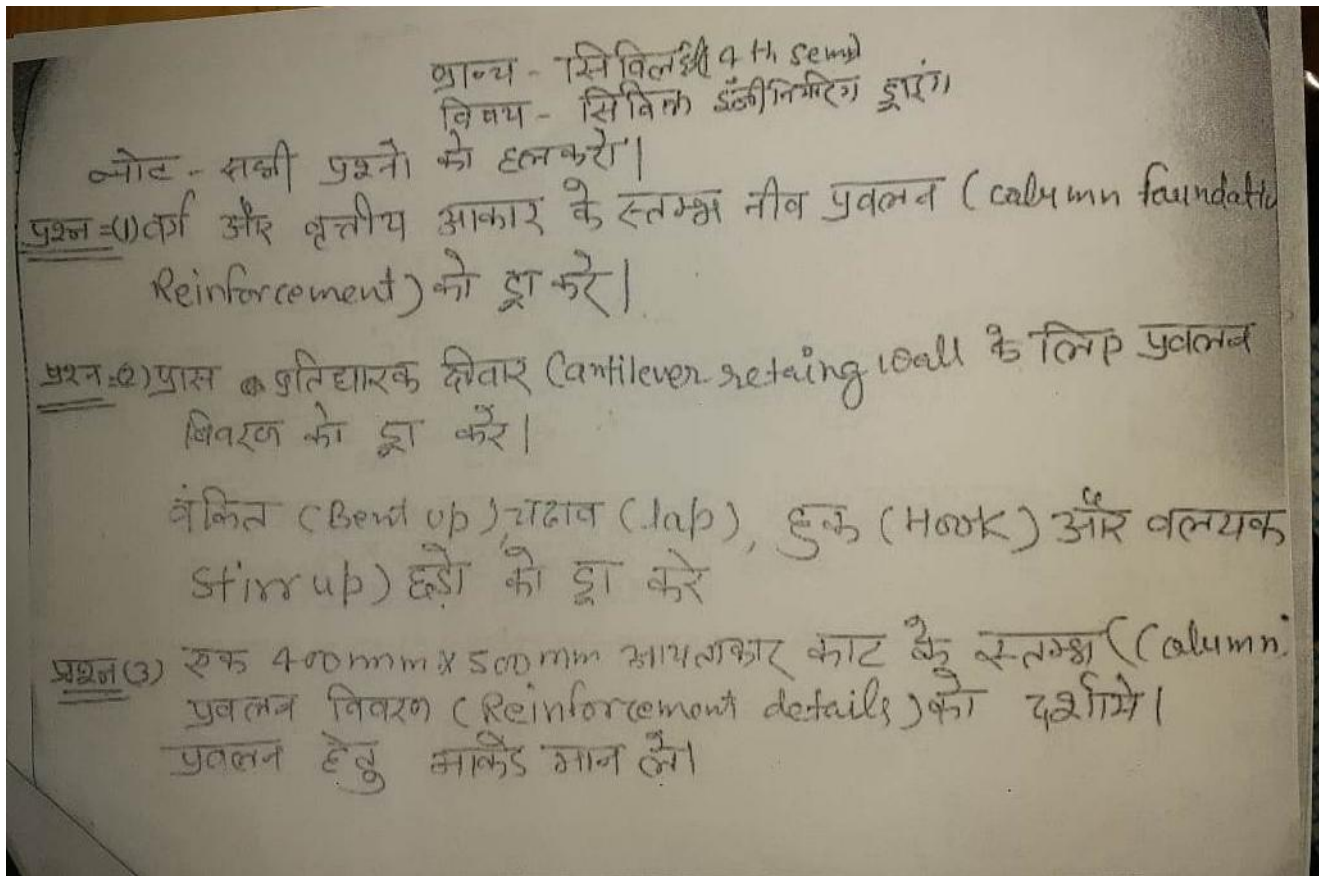 ब्रान्च - सिविल 4th sem
विषय - सिविल इंजीनियरिंग ड्राइंग
नोट - सभी प्रश्नो को हल करो।
प्रश्न=(1) वर्ग और वृत्तीय आकार के स्तम्भ नीव प्रवलन (column foundatio
Reinforcement) को ड्रा करे।
प्रश्न=(2) प्रास प्रतिधारक दीवार Cantilever retaing wall के लिए प्रवलन
विवरण को ड्रा करे।
वंकित (Bent up), चढाव (lap), हुक (Hook) और वलयक
Stirrup) छड़ो को ड्रा करे
प्रश्न(3) एक 400mm x 500mm आयताकार काट के स्तम्भ (Column
प्रवलन विवरण (Reinforcement details) को दर्शाये।
प्रवलन हेतु आकडे मान ले।